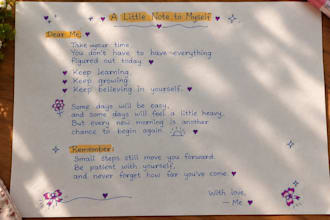 A Little Note to Myself
Dear Me,
Take your time.
You don't have to have everything
figured out today.
Keep learning.
Keep growing.
Keep believing in yourself.
Some days will be easy,
and some days will feel a little heavy.
But every new morning is another
chance to begin again.
Remember:
Small steps still move you forward.
Be patient with yourself,
and never forget how far you've come.
With love,
— Me